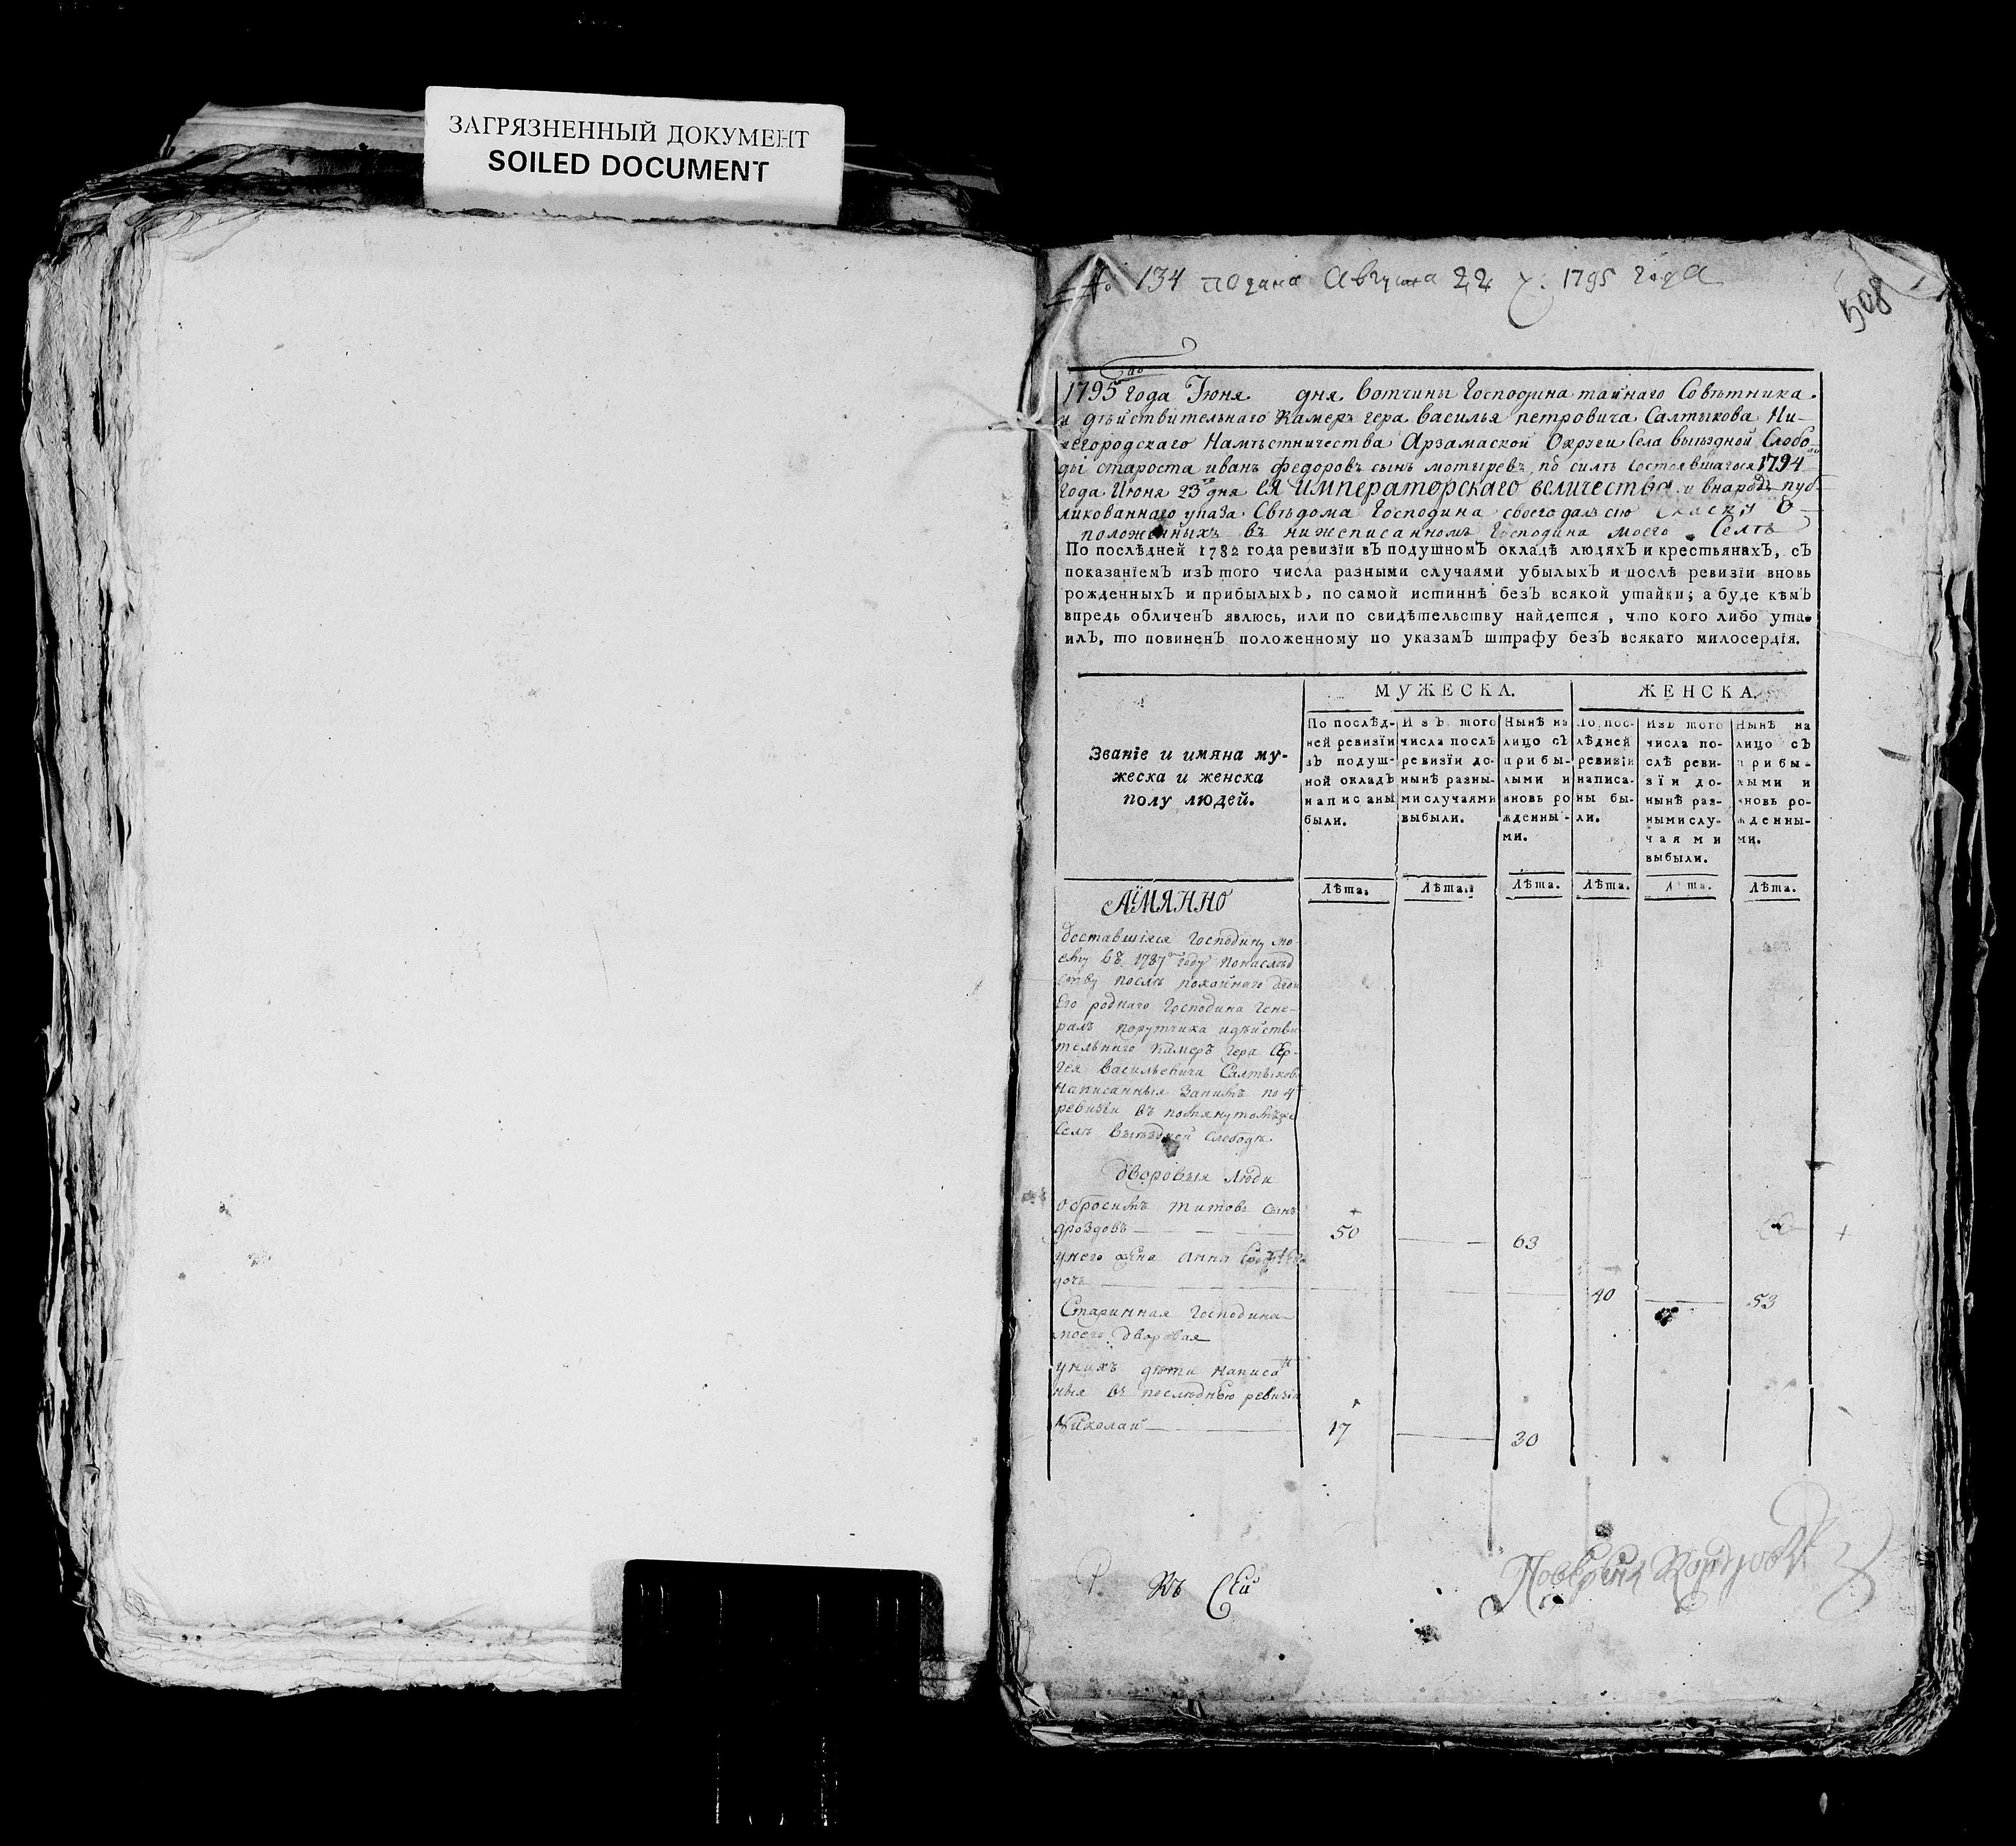 ЗАГРЯЗНЕННЫЙ ДОКУМЕНТ
SOILED DOCUMENT
№ 134 подана Августа 22 ч: 1795 года
508
1795го года Июня дня вотчины Господина тайнаго Совѣтника
и дѣйствительнаго Камеръ гера Василья петровича Салтыкова Ни-
жегородскаго Намѣстничества Арзамаской Округи Села выѣздной Слобо-
ды староста иванъ федоровъ сынъ мотыревъ, по силѣ состоявшагося 1794го
года Июня 23го дня ея императорскаго величества и внародъ пуб-
ликованнаго указа Свѣдома Господина своего далъ сию Скаску о
положенныхъ въ нижеписанномъ Господина моего Селѣ
По послѣдней 1782 года ревизїи вЪ подушномЪ окладѣ людяхЪ и крестьянахЪ, сЪ
показанїемЪ изЪ того числа разными случаями убылыхЪ и послѣ ревизїи вновь
рожденныхЪ и прибылыхЪ, по самой истиннѣ безЪ всякой утайки; а буде кѣмЪ
впредь обличенЪ явлюсь, или по свидѣтельству найдется, что кого либо ута-
илЪ, то повиненЪ положенному по указамЪ штрафу безЪ всякаго милосердїя.
МУЖЕСКА. ЖЕНСКА.
Званїе и имяна му-
жеска и женска
полу людей.
По послѣд-
ней ревизїи
вЪ подуш-
ной окладЪ
написаны
были.
ИзЪ того
числа послѣ
ревизїи до-
нынѣ разны-
ми случаями
выбыли.
Нынѣ на
лицо сЪ
прибы-
лыми и
вновь ро
жденны-
ми.
По пос-
лѣдней
ревизїи
написа-
ны бы-
ли.
ИзЪ того
числа по-
слѣ реви-
зїи до-
нынѣ раз-
ными слу-
чаями
выбыли.
Нынѣ на
лицо сЪ
прибы-
лыми и
вновь ро-
жденны-
ми.
Лѣта. Лѣта. Лѣта. Лѣта. Лѣта. Лѣта.
АИМЯННО
доставшїяся Господину мо
ему въ 1787м году понаслѣд
ству послѣ покойнаго дяди
Его роднаго Господина Гене-
ралъ порутчика идѣйстви
тельнаго Камеръ гера Сер-
гея Васильевича Салтыкова
написанныя занимъ по 4й
ревизїи въ помянутомъже
селѣ Выѣздной слободѣ.
дворовыя люди
Обросимъ титовъ сынъ
дроздовъ 50 63
унего жена анна
дочь 40 53
Старинная Господина
моего дворовая
унихъ дѣти написан
ныя въ послѣднею ревизїю
Николай 17 30
Къ Сей